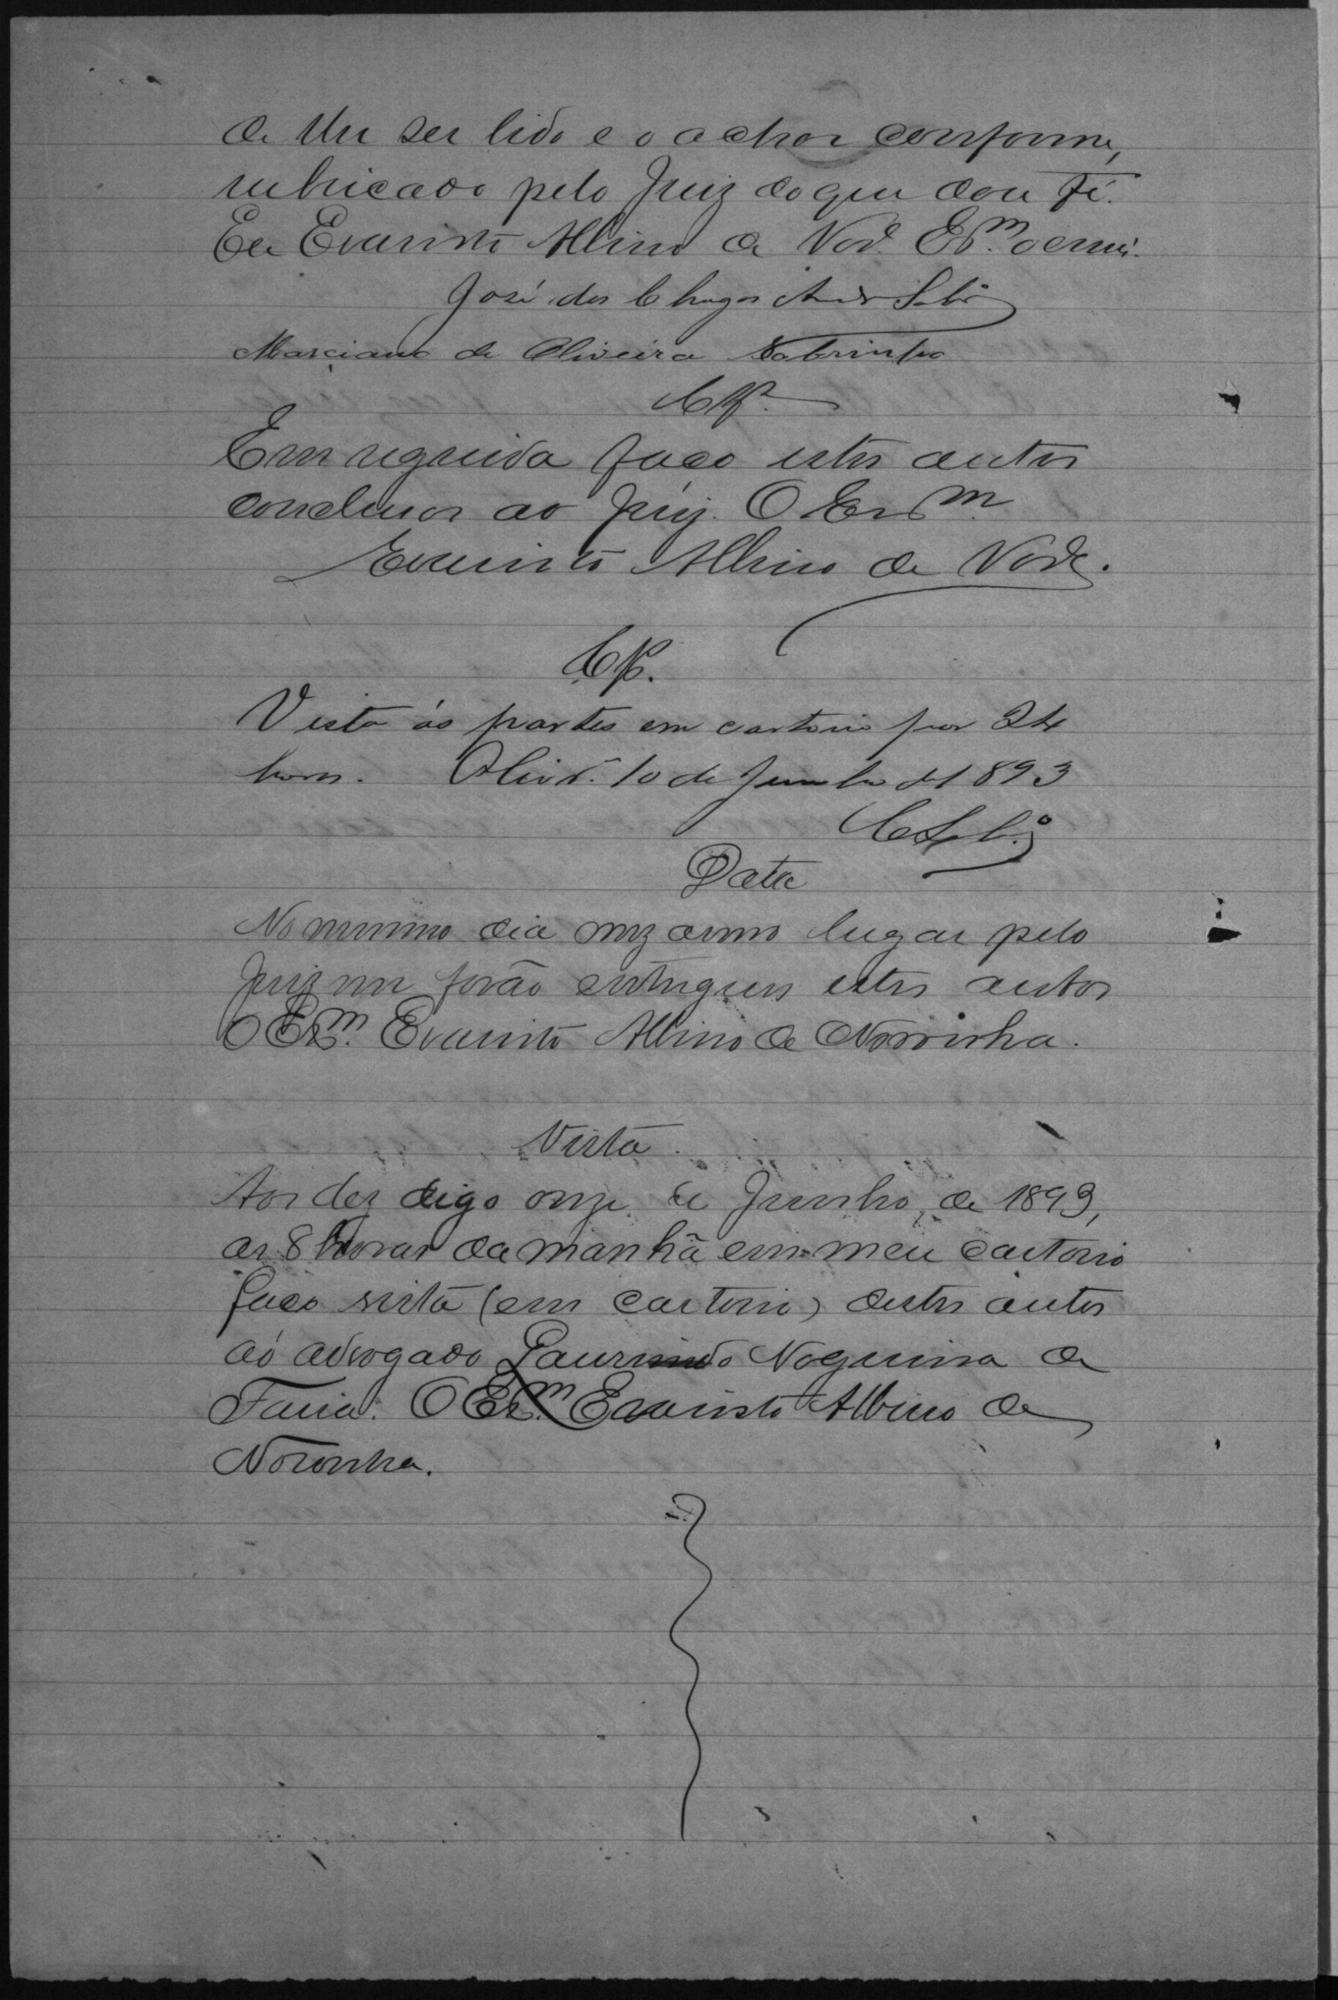 de lhe ser lido e o achar conforme,
rubricado pelo Juiz do que dou fé.
Eu Evaristo Albino de Nor.ª Esm. o escrevi.
José das Chagas Andr
Marciano de Oliveira Sobrinho
Clz.
Em seguida faço estes autos
conclusos ao Juiz. O Escrm
Evaristo Albino de Nor.ª
Clz.
Vista ás partes em cartorio por 24
horas. Olivr.ª 10 de Junho de 1893
Data
No mesmo dia mez anno lugar pelo
Juiz me forão entregues estes autos
O Escrm. Evaristo Albino de Noronha.
Vista
Aos dez digo onze de Junho, de 1893,
as 8 horas da manhã em meu cartorio
faço vista (em cartorio) destes autos
ao advogado Laurindo Nogueira de
Faria. O Escrm. Evaristo Albino de
Noronha.